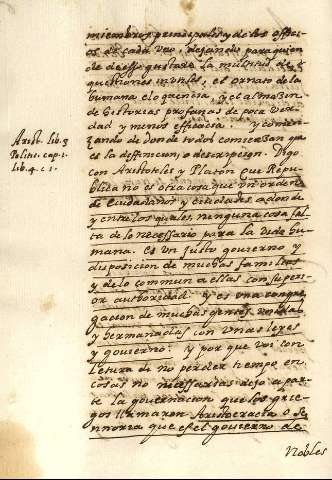 miembros principales y de los offici
os de cada uno, dejando para quien
de desso gustare la multitud de
questiones inutiles, el ornato de la
humana eloquencia, y el almazin
de historias profanas de poca ver
dad y menos efficacia. y comen
zando de donde todos comienzan que
es la deffinicion, o descripcion. Digo
con Aristoteles y Platon que Repu
blica no es otra cosa que un orden
de ciudadanos y ciudades a donde
y entre los quales, ninguna cosa fal
ta de lo necessario para la vida hu
mana. es un justo gouierno y
disposicion de muchas familias
y de lo commun a ellas con superi
or authoridad. Y es una congre
gacion de muchas gentes unidas
y hermanadas con unas leyes
y gouierno: y por que voi con
letura de no perder tiempo en
cosas no necessarias dejo a par
te la gouernacion que los grie
gos llamaron Aristocracia o Se
nnoria que es el gouierno de
Nobles
Arist. lib. 3
Politi. cap. 1.
lib. 4. c. 1.